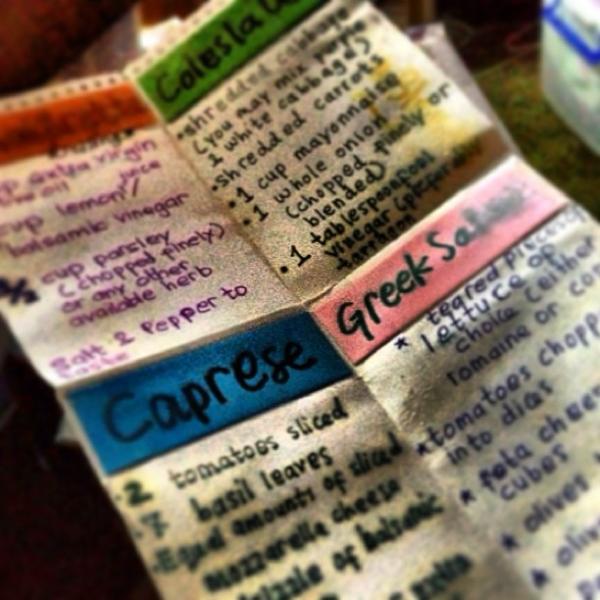 Coleslaw
shredded cabbage
(you may mix purple
& white cabbage)
shredded carrots
1 cup mayonnaise
1 whole onion
(chopped finely or
blended)
1 tablespoonful
vinegar
extra virgin
olive oil
cup lemon juice
balsamic vinegar
1/2 cup parsley
(chopped finely)
or any other
available herb
Salt & Pepper to
taste
Caprese
2 tomatoes sliced
7 basil leaves
Equal amounts of sliced
mozzarella cheese
drizzle of balsamic
Greek Salad
* teared pieces of
lettuce of
choice (either
romaine or
* tomatoes
into dices
* feta
cubes
* olives
* olive